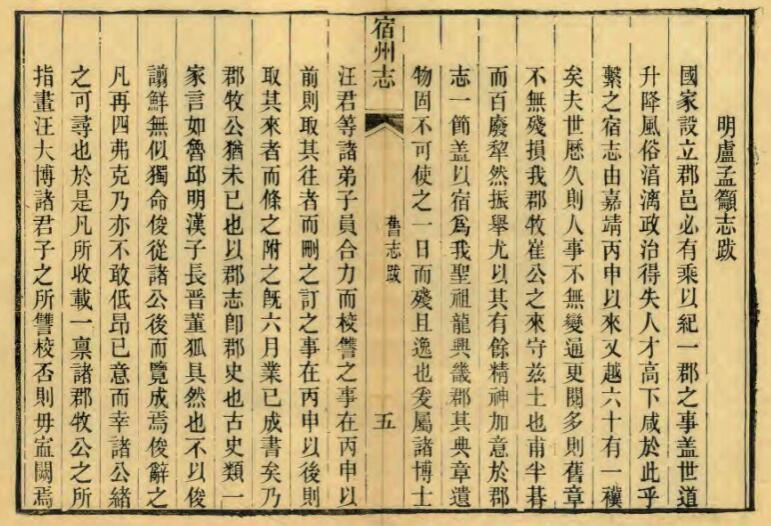 明盧孟籲志跋
國家設立郡邑必有乘以紀一郡之事盖世道
升降風俗淳漓政治得失人才高下咸於此乎
繫之宿志由嘉靖丙申以來又越六十有一禩
矣夫世歷久則人事不無變通更閱多則舊章
不無殘損我郡牧崔公之來守兹土也甫半朞
而百廢犂然振舉尤以其有餘精神加意於郡
志一節盖以宿爲我聖祖龍興畿郡其典章遺
物固不可使之一日而殘且逸也爰屬諸博士
宿州志
舊志跋
五
汪君等諸弟子員合力而校讐之事在丙申以
前則取其往者而刪之訂之事在丙申以後則
取其來者而條之附之旣六月業已成書矣乃
郡牧公猶未已也以郡志卽郡史也古史類一
家言如魯邱明漢子長晋董狐具然也不以俊
譾鮮無似獨命俊從諸公後而覽成焉俊辭之
凡再四弗克乃亦不敢低昂已意而幸諸公緒
之可尋也於是凡所收載一禀諸郡牧公之所
指畫汪大博諸君子之所讐校否則毋寍闕焉